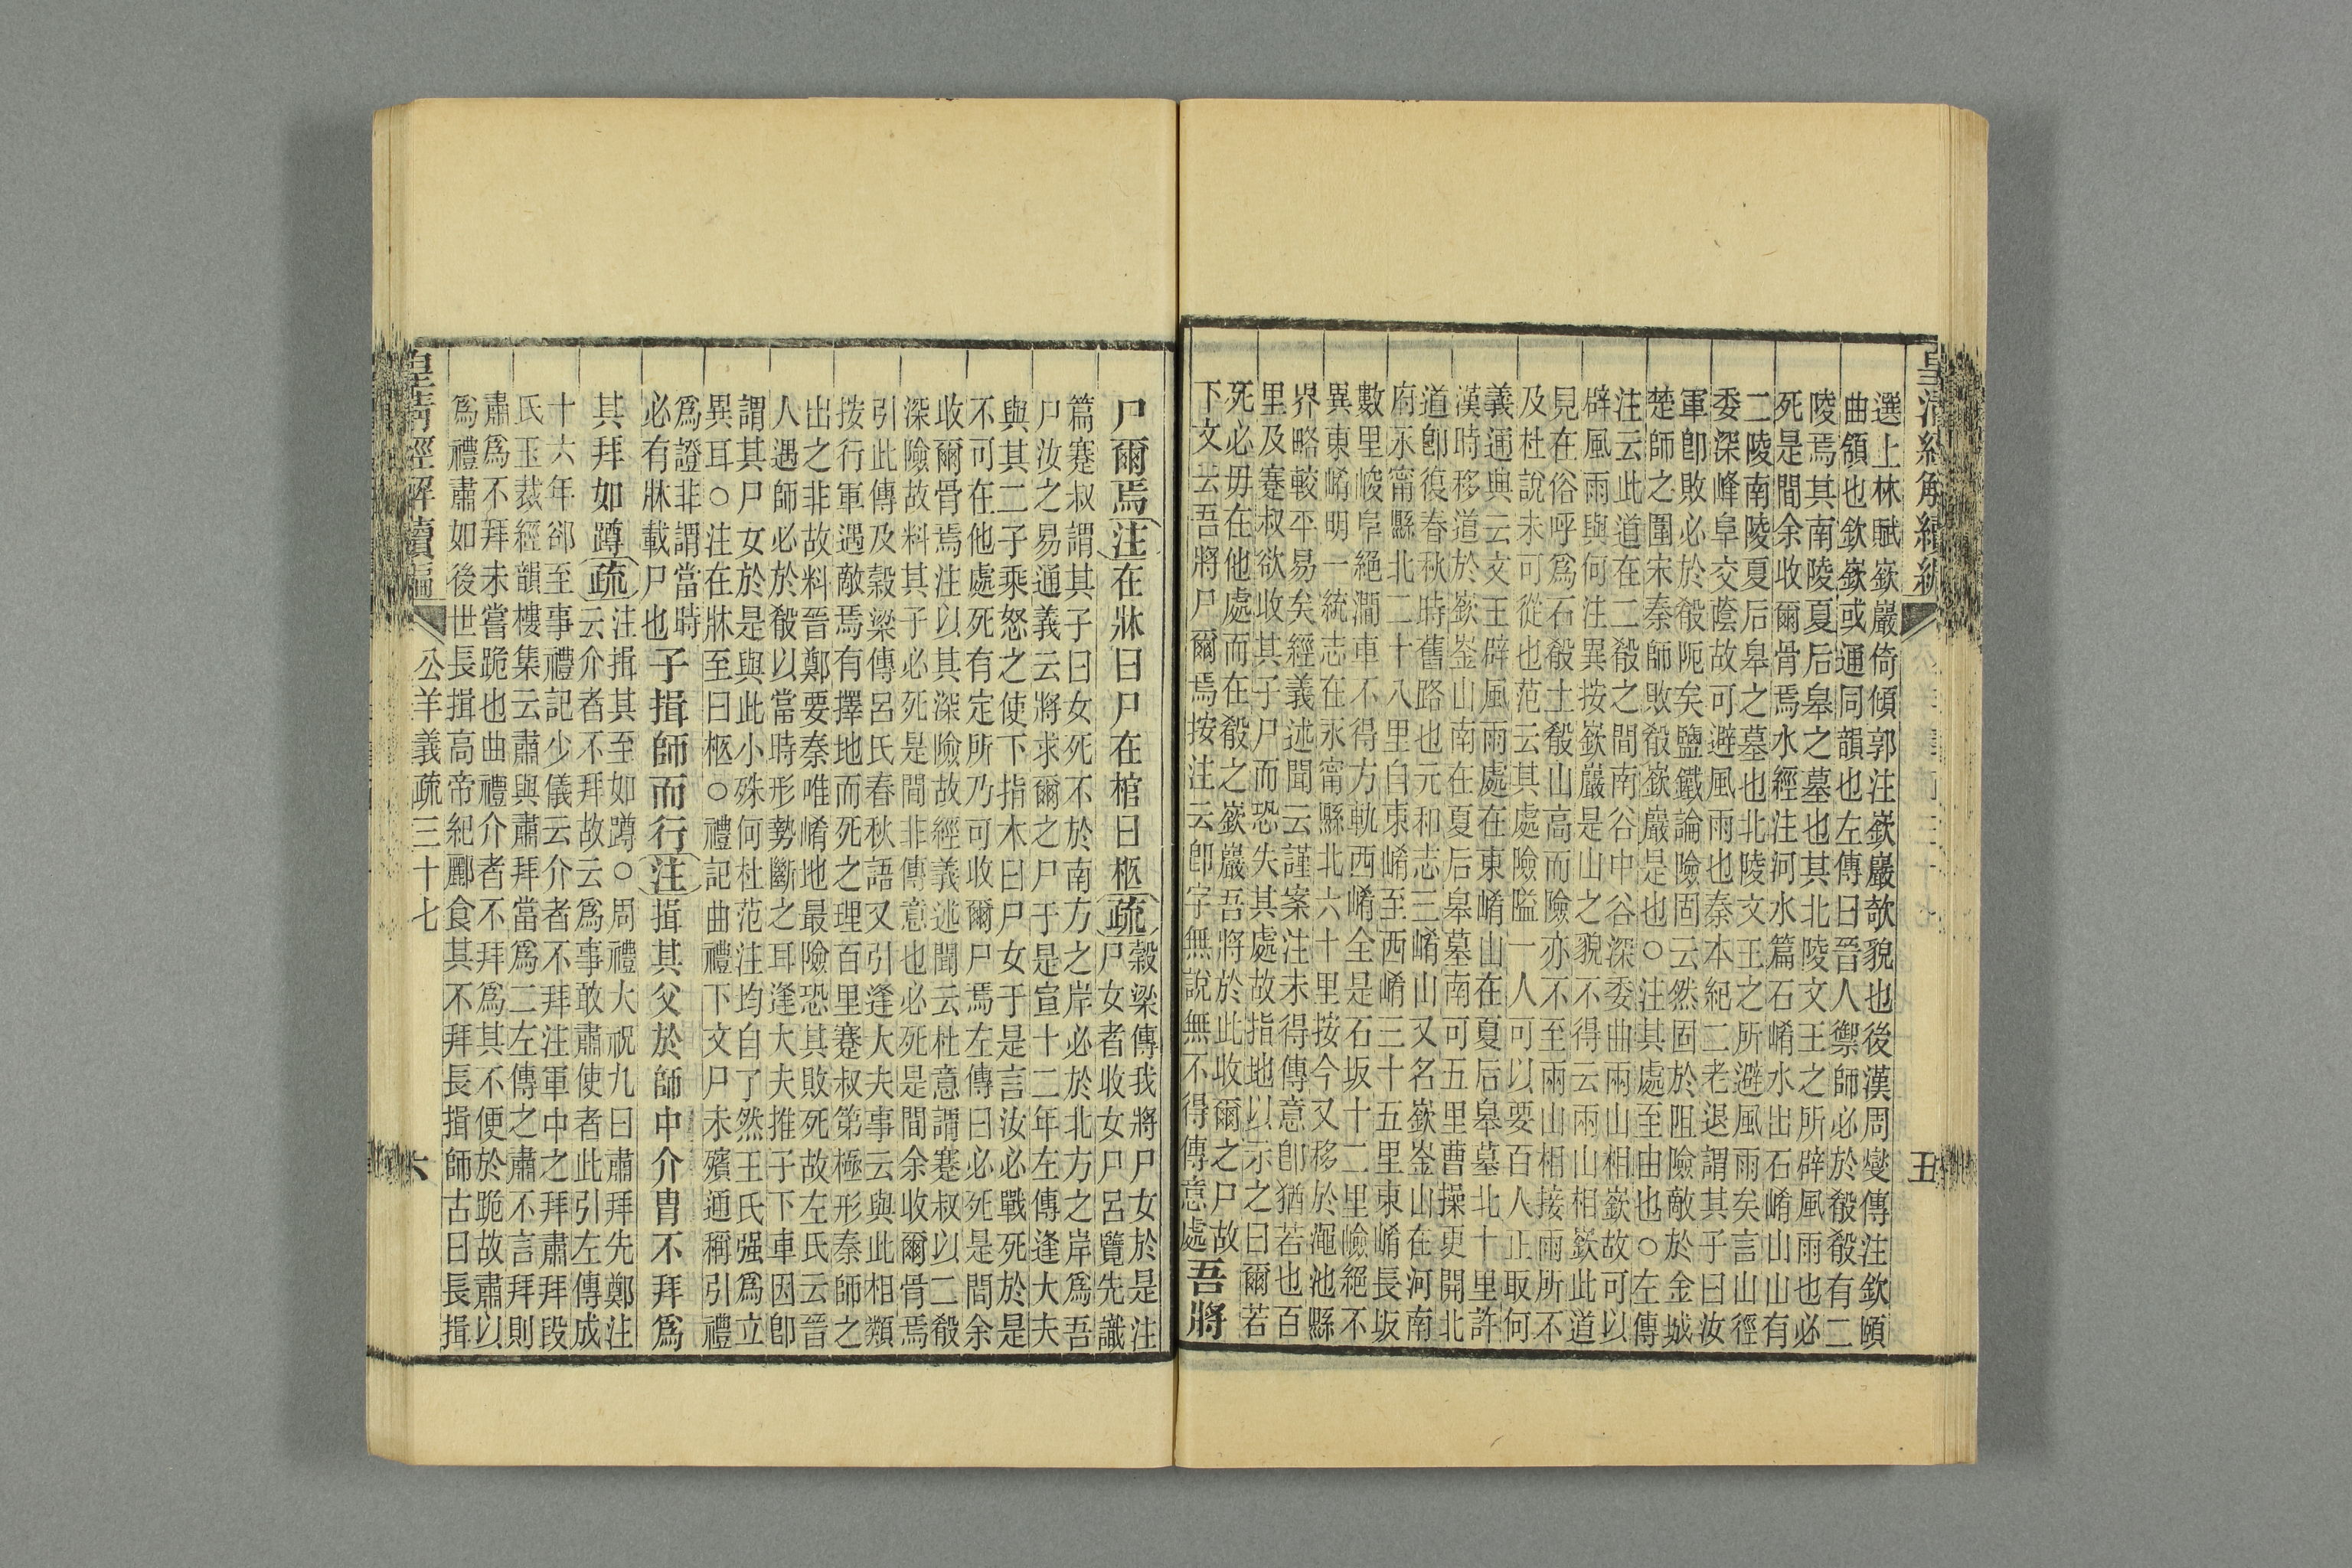 皇清經解續編 五
選上林賦嶔巖倚傾郭注嶔巖欹貌也後漢周燮傳注欽頤
曲頷也欽嶔或通同韻也左傳曰晉人禦師必於殽殽有二
陵焉其南陵夏后皋之墓也其北陵文王之所辟風雨也必
死是間余收爾骨焉水經注河水篇石崤水出石崤山山有
二陵南陵夏后皋之墓也北陵文王之所避風雨矣言山徑
委深峰阜交蔭故可避風雨也秦本紀二老退謂其子曰汝
軍卽敗必於殽阨矣鹽鐵論險固云然固於阻險敵於金城
楚師之圍宋秦師敗殽嶔巖是也○注其處至由也○左傳
注云此道在二殽之間南谷中谷深委曲兩山相嶔故可以
辟風雨與何注異按嶔巖是山之貌不得云兩山相嶔此道
見在俗呼爲石殽土殽山高而險亦不至兩山相接雨所不
及杜說未可從也范云其處險隘一人可以要百人止取何
義通典云文王辟風雨處在東崤山在夏后皋墓北十里許
漢時移道於嶔崟山南在夏后皋墓南可五里曹操更開北
道卽復春秋時舊路也元和志三崤山又名嶔崟山在河南
府永甯縣北二十八里自東崤至西崤三十五里東崤長坂
數里峻阜絕澗車不得方軌西崤全是石坂十二里嶮絕不
異東崤明一統志在永甯縣北六十里按今又移於澠池縣
界略較平易矣經義述聞云謹案注未得傳意卽猶若也百
里及蹇叔欲收其子尸而恐失其處故指地以示之曰爾若
死必毋在他處而在殽之嶔巖吾將於此收爾之尸故
下文云吾將尸爾焉按注云卽字無說無不得傳意處吾將
尸爾焉注在牀曰尸在棺曰柩疏穀梁傳我將尸女於是注
尸女者收女尸呂覽先識
篇蹇叔謂其子曰女死不於南方之岸必於北方之岸爲吾
尸汝之易通義云將求爾之尸于是宣十二年左傳逢大夫
與其二子乘怒之使下指木曰尸女于是言汝必戰死於是
不可在他處死有定所乃可收爾尸焉左傳曰必死是間余
收爾骨焉注以其深險故經義述聞云杜意謂蹇叔以二殽
深險故料其子必死是間非傳意也必死是間余收爾骨焉
引此傳及穀梁傳呂氏春秋語又引逢大夫事云與此相類
按行軍遇敵焉有擇地而死之理百里蹇叔第極形秦師之
出之非故料晉鄭要秦唯崤地最險恐其敗死故左氏云晉
人遇師必於殽以當時形勢斷之耳逢大夫推子下車因卽
謂其尸女於是與此小殊何杜范注均自了然王氏强爲立
異耳○注在牀至曰柩○禮記曲禮下文尸未殯通稱引禮
爲證非謂當時
必有牀載尸也子揖師而行注揖其父於師中介冑不拜爲
其拜如蹲疏注揖其至如蹲○周禮大祝九曰肅拜先鄭注
云介者不拜故云爲事敢肅使者此引左傳成
十六年郤至事禮記少儀云介者不拜注軍中之拜肅拜段
氏玉裁經韻樓集云肅與肅拜當爲二左傳之肅不言拜則
肅爲不拜未嘗跪也曲禮介者不拜爲其不便於跪故肅以
爲禮肅如後世長揖高帝紀酈食其不拜長揖師古曰長揖
皇清經解續編 公羊義疏三十七 六